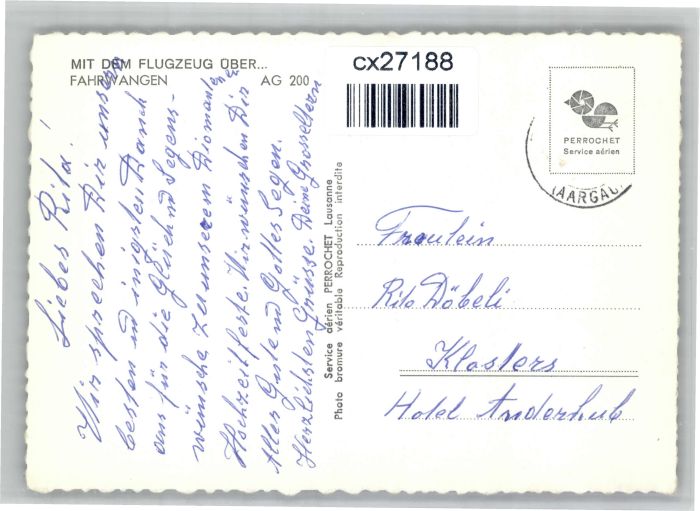 MIT DEM FLUGZEUG ÜBER...
FAHRWANGEN AG 200
cx27188
PERROCHET
Service aérien
(AARGAU)
Liebes Rita!
Wir sprechen Dir unsern
besten und inigsten Dank
aus für die Glück und Segens-
wünsche zu unserem Diomantenen
Hochzeitfeste. Wir wünschen Dir
Alles Gute und Gottes Segen.
Herzlichsten Grüsse. Deine Grosseltern
Service aérien PERROCHET Lausanne
Photo bromure véritable Reproduction interdite
Fräulein
Rita Döbeli
Klosters
Hotel Anderhub